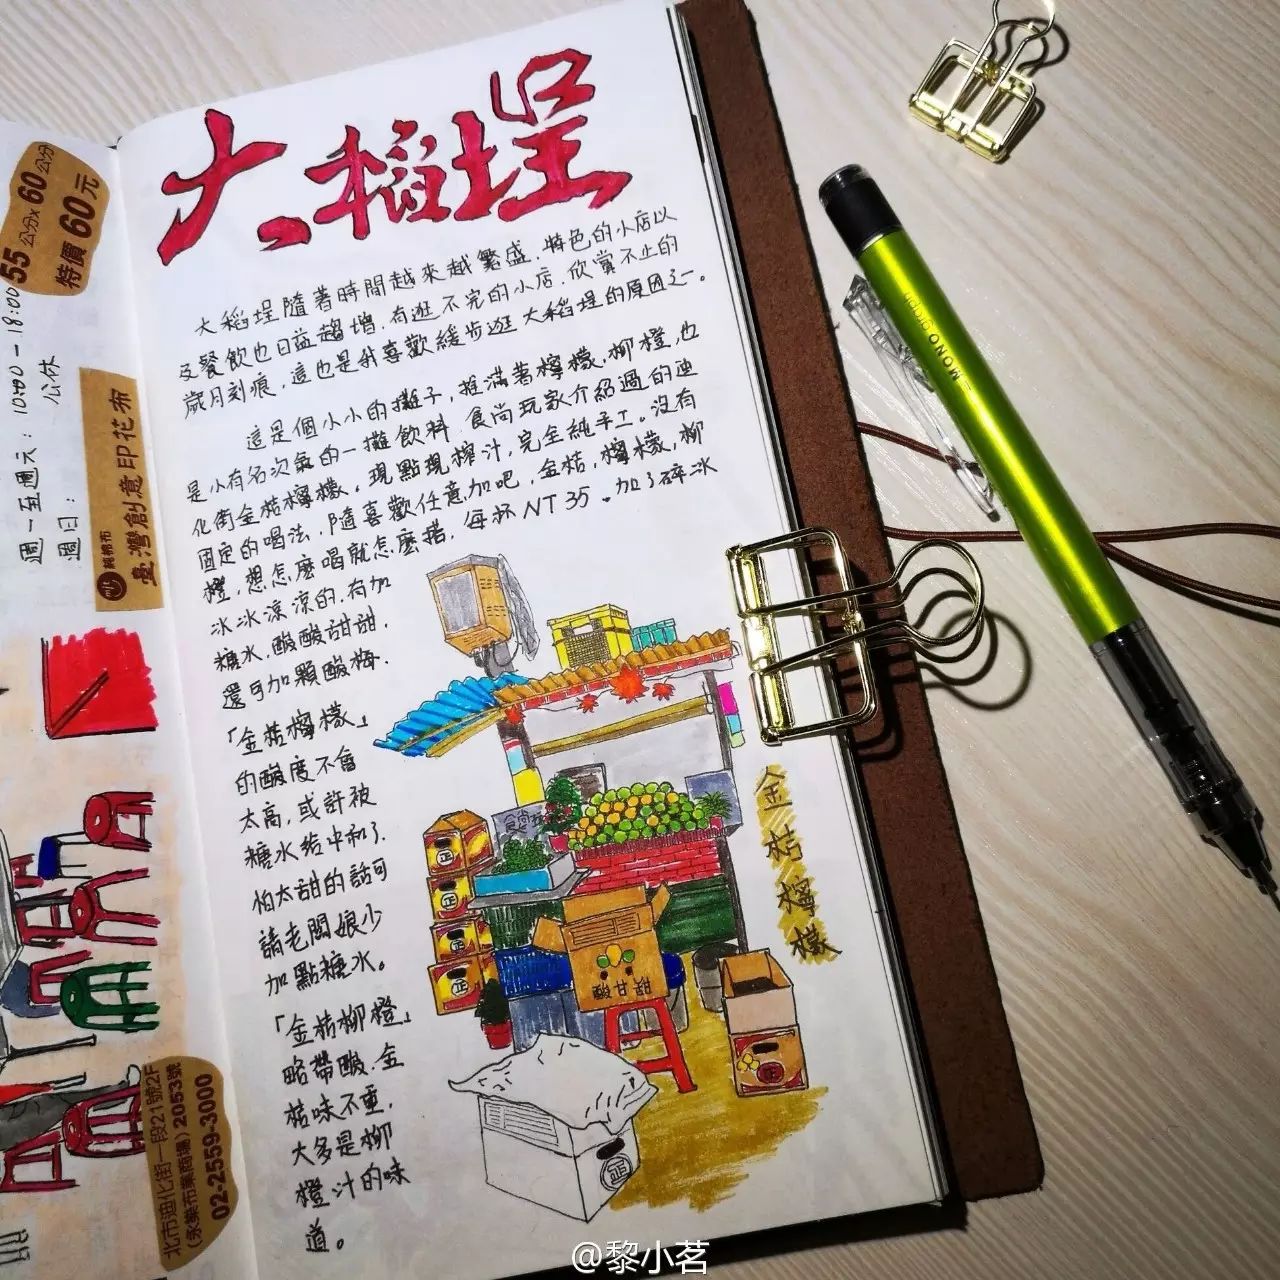 55公分x60公分
特價60元
週一至週六：10:00-18:00
週日：公休
純棉布
臺灣創意印花布
北市迪化街一段21號2F
(永樂布業商場) 2053號
02-2559-3000
大稻埕
大稻埕隨著時間越來越繁盛，特色的小店以
及餐飲也日益趨增，有逛不完的小店，欣賞不止的
歲月刻痕，這也是我喜歡緩步逛大稻埕的原因之一。
這是個小小的攤子，堆滿著檸檬，柳橙，也
是小有名次氣的一攤飲料，食尚玩家介紹過的迪
化街金桔檸檬。現點現榨汁，完全純手工。沒有
固定的喝法，隨喜歡任意加吧，金桔，檸檬，柳
橙，想怎麼喝就怎麼搭，每杯NT35。加了碎冰
冰冰涼涼的，有加
糖水，酸酸甜甜，
還可加顆酸梅.
「金桔檸檬」
的酸度不會
太高，或許被
糖水給中和了.
怕太甜的話可
請老闆娘少
加點糖水。
「金桔柳橙」
略帶酸，金
桔味不重，
大多是柳
橙汁的味
道。
金桔檸檬
正
正
正
正
酸甘甜
正
MONO graph
@黎小茗